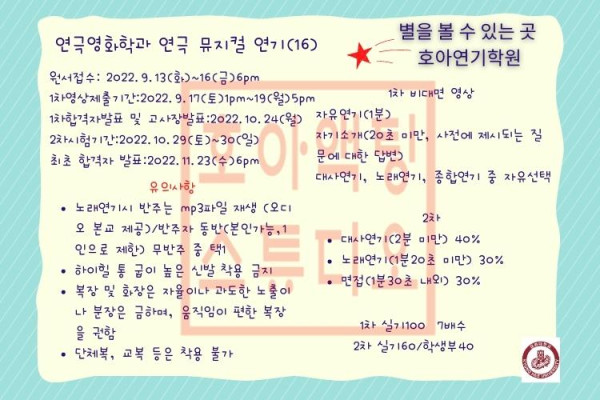 연극영화학과 연극 뮤지컬 연기(16)
별을 볼 수 있는 곳
호아연기학원
원서접수: 2022. 9.13(화)~16(금)6pm
1차영상제출기간:2022. 9.17(토)1pm~19(월)5pm
1차합격자발표 및 고사장발표:2022. 10.24(월)
2차시험기간:2022. 10.29(토)~30(일)
최초 합격자 발표:2022.11.23(수)6pm
유의사항
노래연기시 반주는 mp3파일 재생 (오디
오 본교 제공)/반주자 동반(본인가능,1
인으로 제한) 무반주 중 택1
하이힐 통 굽이 높은 신발 착용 금지
복장 및 화장은 자율이나 과도한 노출이
나 분장은 금하며, 움직임이 편한 복장
을 권함
단체복, 교복 등은 착용 불가
1차 비대면 영상
자유연기(1분)
자기소개(20초 미만, 사전에 제시되는 질
문에 대한 답변)
대사연기, 노래연기, 종합연기 중 자유선택
2차
대사연기(2분 미만) 40%
노래연기(1분20초 미만) 30%
면접(1분30초 내외) 30%
1차 실기100 7배수
2차 실기60/학생부40
호아액팅
스튜디오